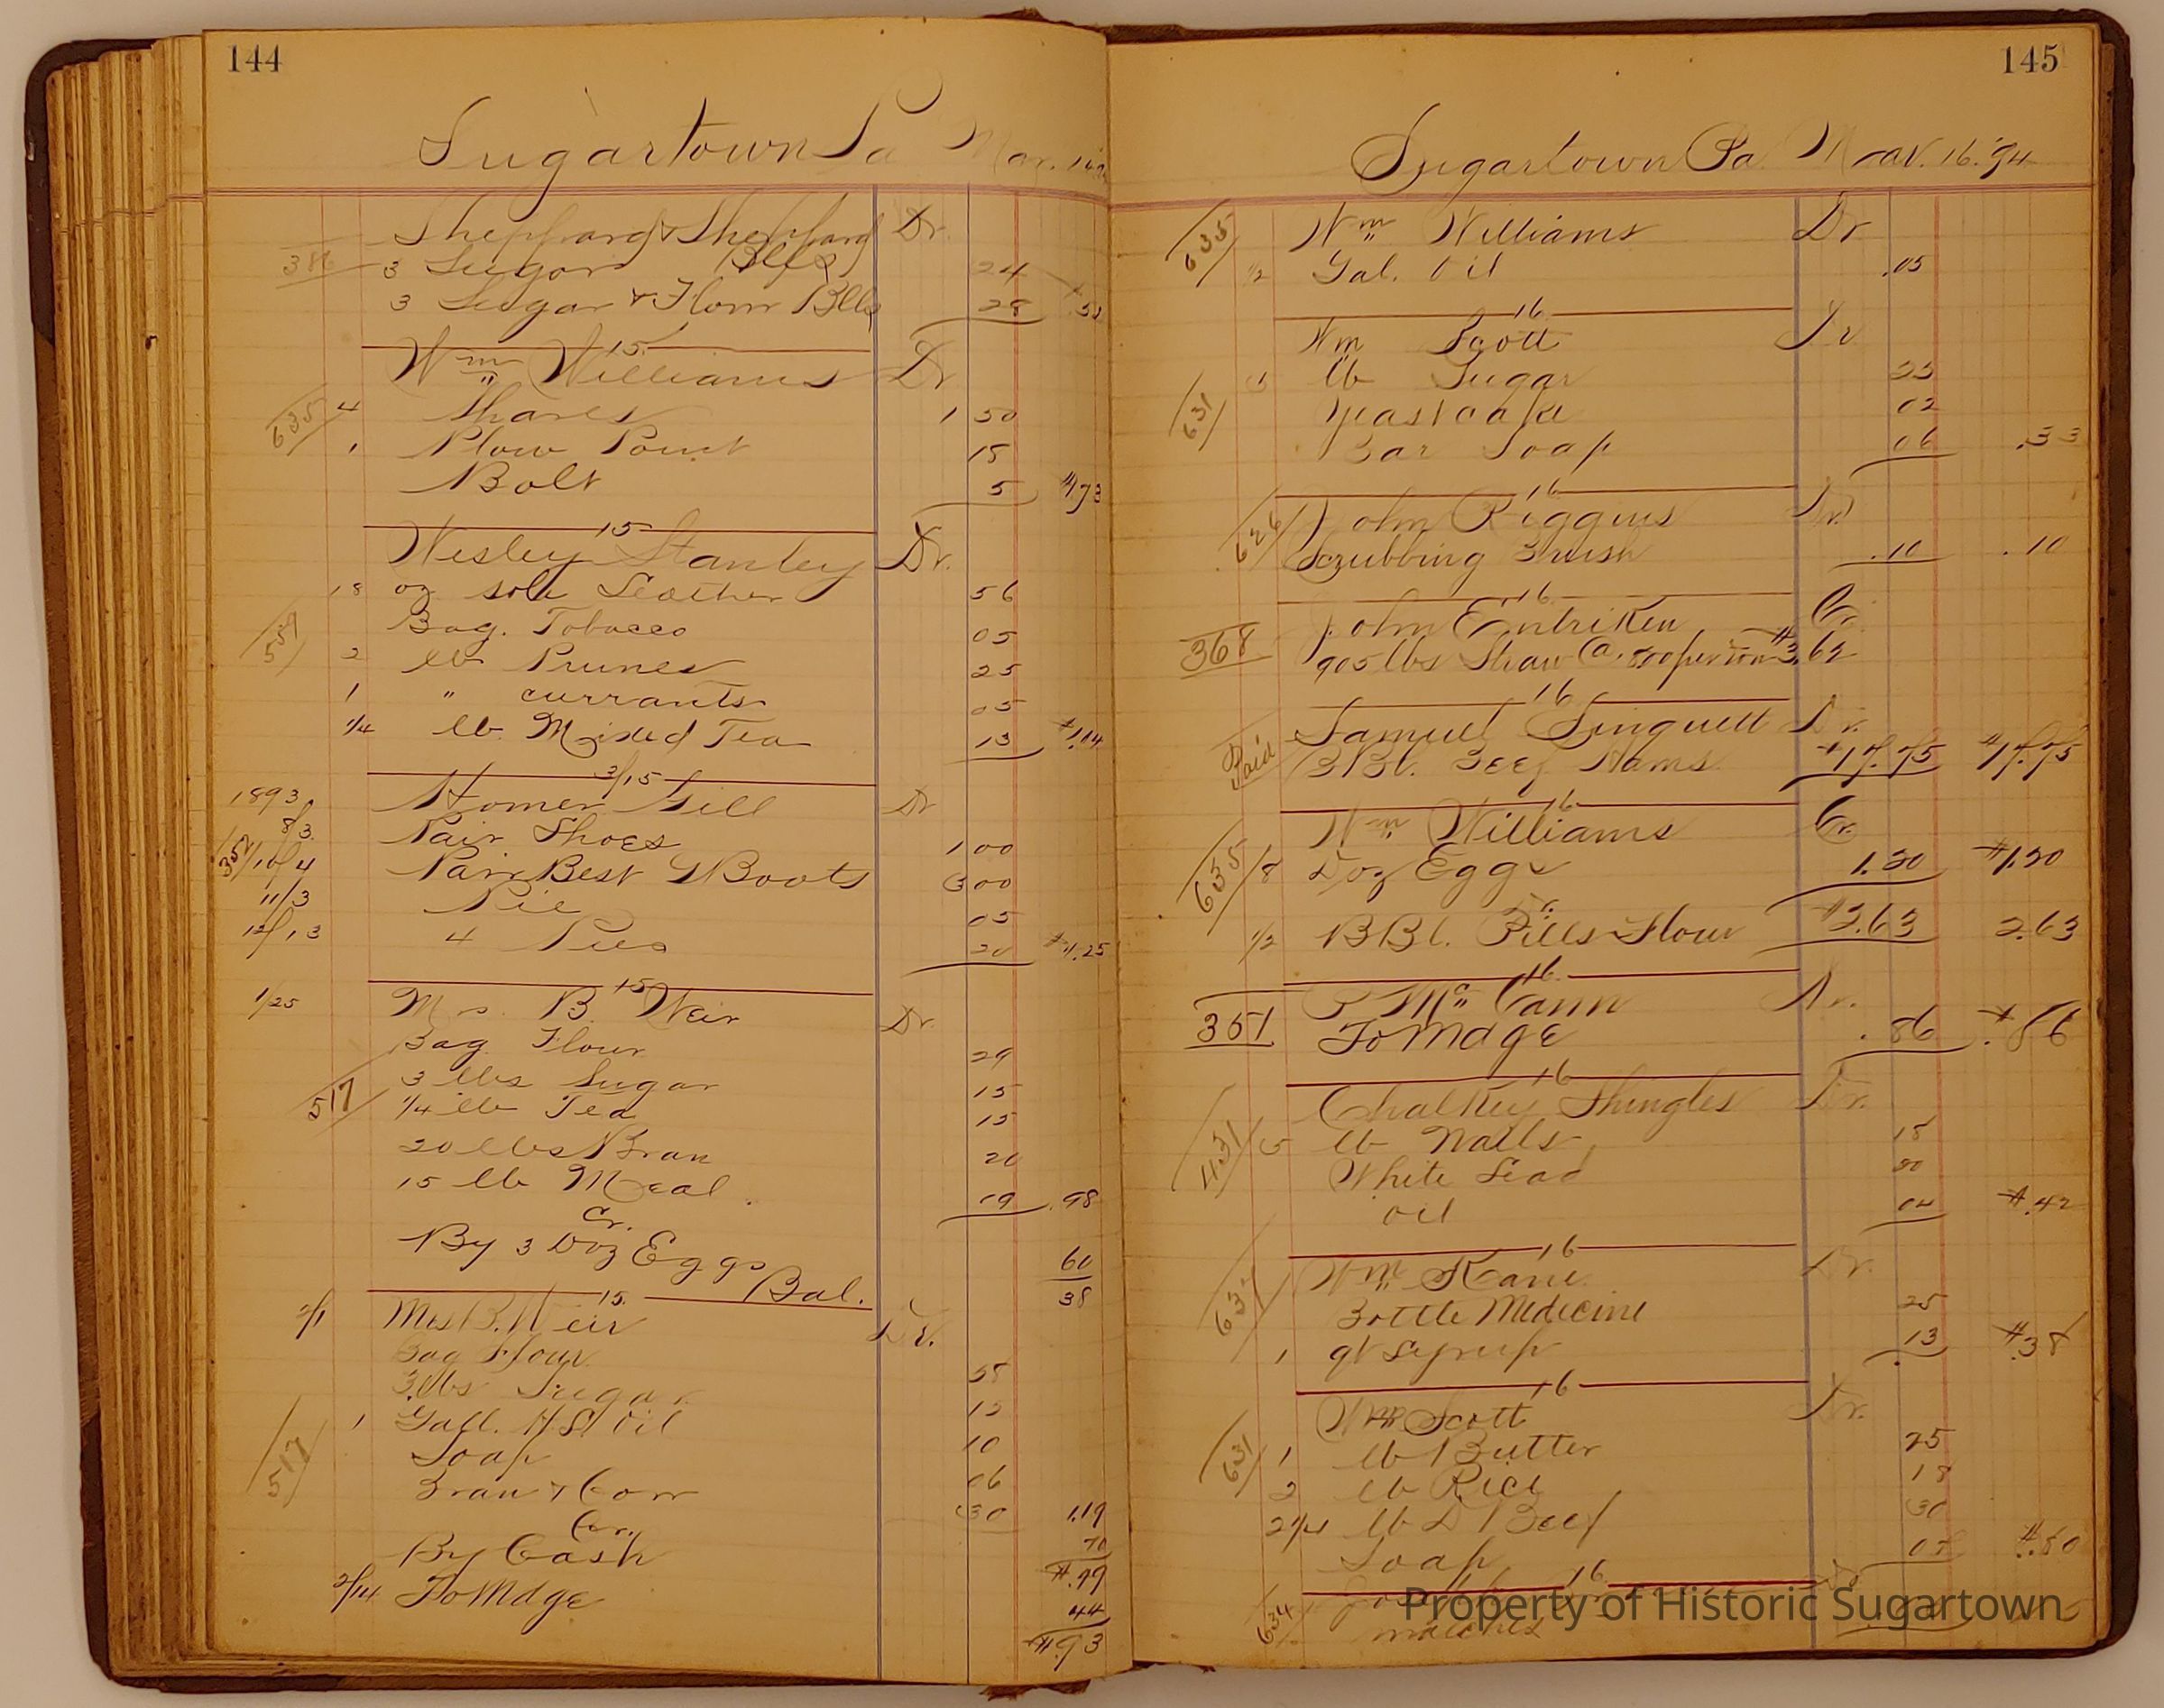 144
Sugartown Pa Mar. 14
Sheppard & Sheppard Dr.
3 Sugar Blls 24
3 Sugar & Flour Blls 28 .52
15
Wm Williams Dr
635 4 Shares 1 50
1 Plow Point 18
Bolt 5 $1.73
15
Wesley Stanley Dr.
18 oz sole Leather 56
Bag. Tobacco 05
557 2 lb Prunes 25
1 " currants 05
1/4 lb. Mixed Tea 13 $1.14
3/15
1893 Homer Gill Dr
8/3 Pair Shoes 1 00
352 10/4 Pair Best G Boots 3 00
11/3 Pie 05
12/13 4 Pies 20 $4.25
15
1/25 Mrs. B. Weir Dr
Bag Flour 29
3 lbs Sugar 15
517 1/4 lb Tea 15
20 lbs Bran 20
15 lb Meal. 19 .98
Cr.
By 3 Doz Eggs 60
Bal. 38
15
2/1 Mrs B. Weir Dr.
Bag Flour 58
3 lbs Sugar 15
1 Gall. H. St Oil 10
517 Soap 06
Bran & Corn 30 1.19
Cr.
By Cash 70
$.49
2/14 To Mdge 44
$.93
145
Sugartown Pa Mar. 16. '94
635 Wm Williams Dr
1/2 Gal. Oil .05
16
Wm Scott Dr
5 lb Sugar 25
631 Yeast cake 02
Bar Soap 06 .33
16
626 John Riggins Dr.
Scrubbing Brush .10 .10
16
John Entriken Cr.
368 905 lbs Straw @ 8.00 per ton $3.62
16
Samuel Dr.
Paid BBl. Beef Hams $17.75 $17.75
16
Wm Williams Cr.
635 8 Doz Eggs 1.20 $1.20
Dr.
1/2 BBl. Pills Flour $2.63 2.63
16
P Mc Cann Dr.
351 To Mdge .86 $.86
16
Chalkey Shingles Dr.
5 lb Nails 15
White Lead
oil 04 $.42
16
Wm Kane Dr.
Bottle Medicine 25
1 qt Syrup 13 $.38
16
Wm Scott Dr.
631 1 lb Butter 25
2 lb Rice 18
2 1/4 lb D Beef
Soap $.80
16
634
matches
Property of Historic Sugartown